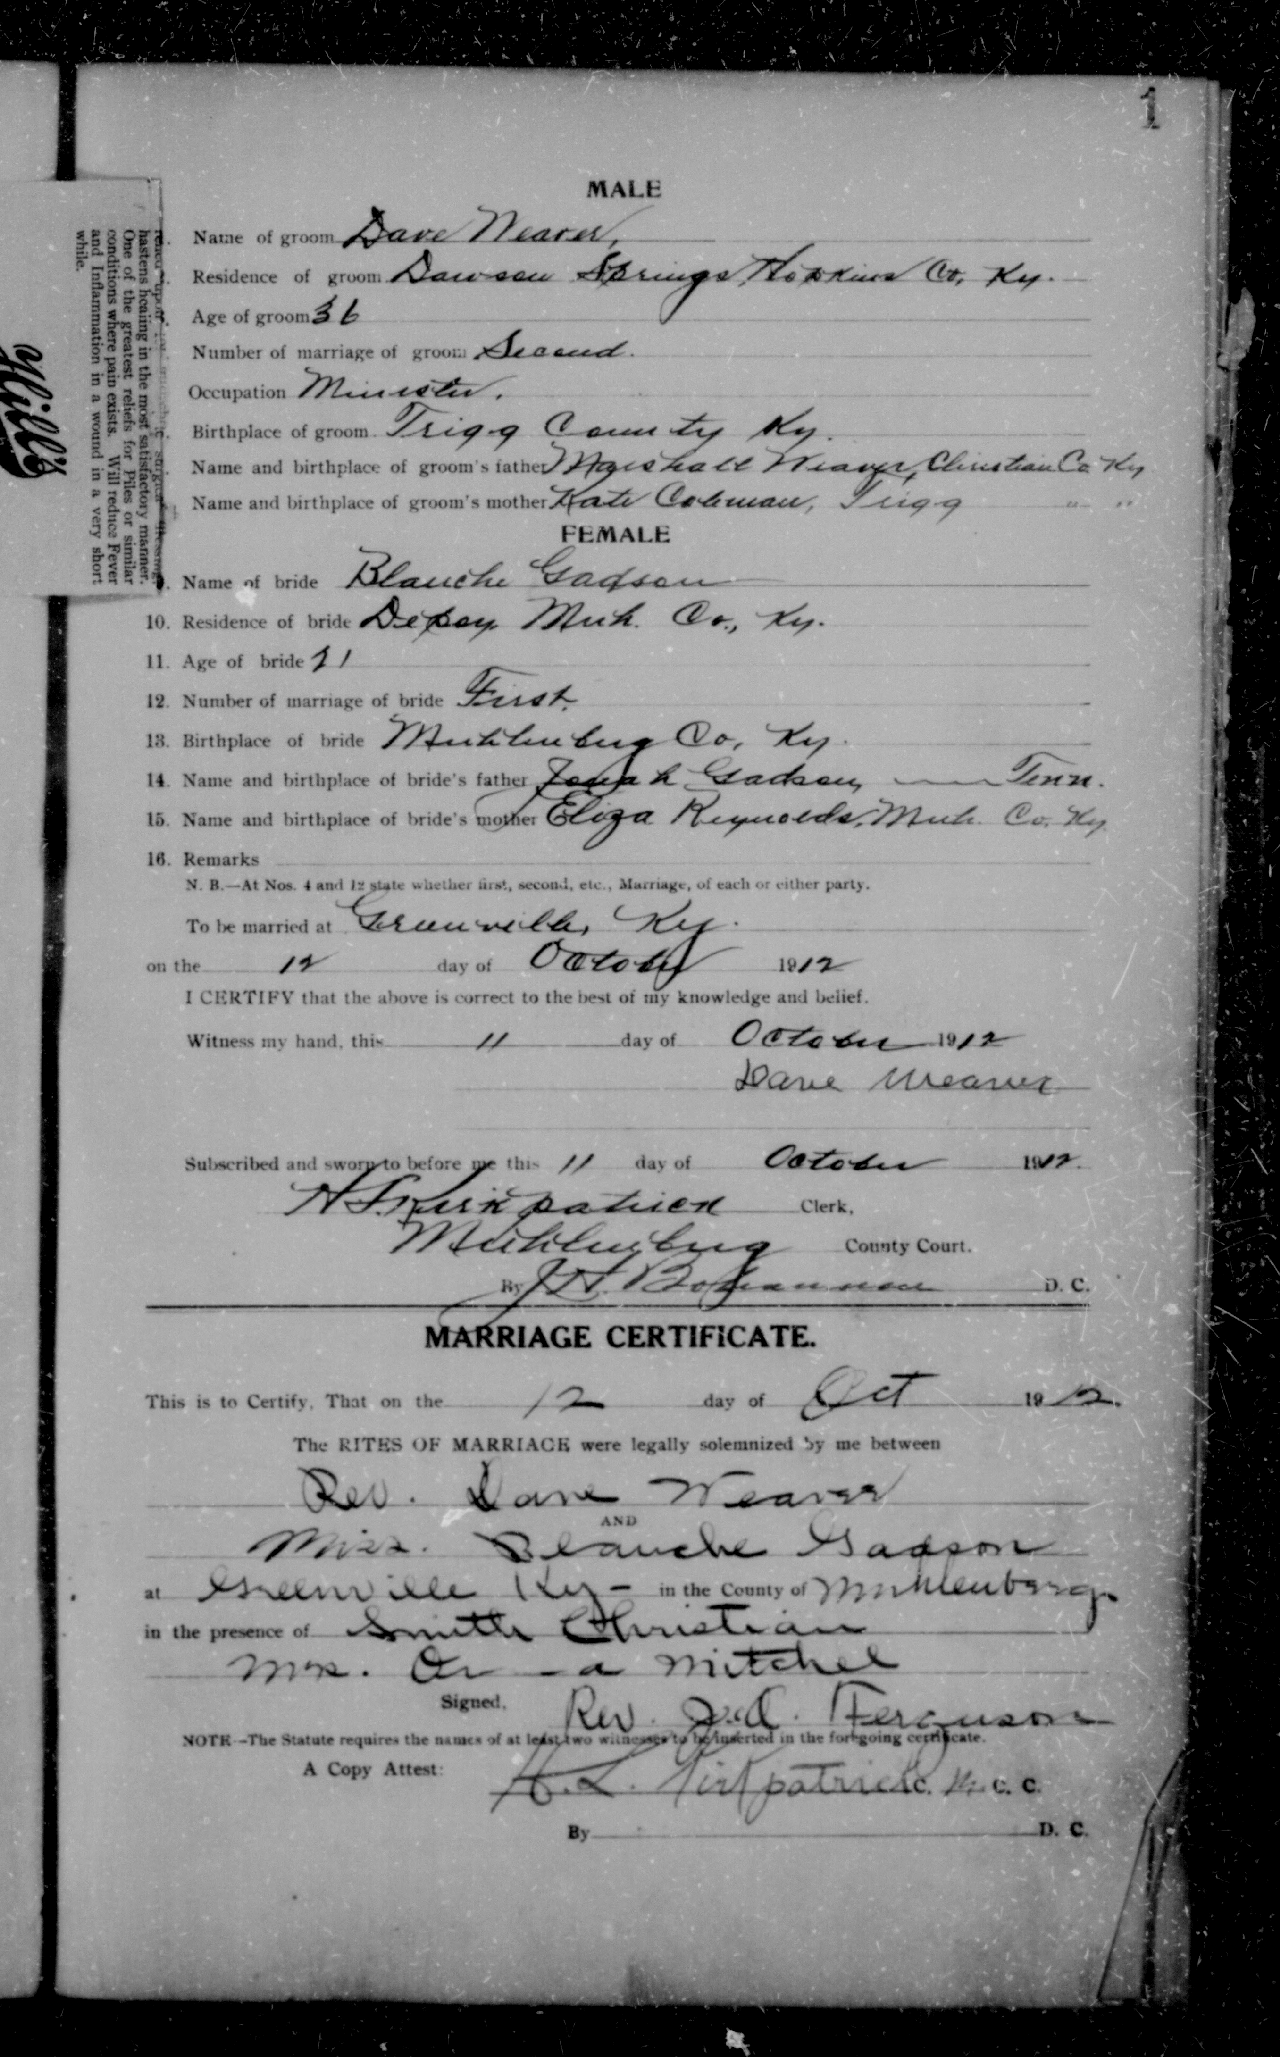 1
MALE
Name of groom Dave Weaver,
Residence of groom Dawson Springs, Hopkins Co, Ky.
Age of groom 36
Number of marriage of groom Second.
Occupation Minister.
Birthplace of groom Trigg County Ky.
Name and birthplace of groom's father Marshall Weaver, Christian Co Ky
Name and birthplace of groom's mother Kate Coleman, Trigg " "
FEMALE
Name of bride Blanche Gadson
10. Residence of bride Depoy Muh. Co., Ky.
11. Age of bride 21
12. Number of marriage of bride First.
13. Birthplace of bride Muhlenberg Co, Ky.
14. Name and birthplace of bride's father Gadson, Tenn.
15. Name and birthplace of bride's mother Eliza Reynolds, Muh. Co. Ky
16. Remarks
N. B.—At Nos. 4 and 12 state whether first, second, etc., Marriage, of each or either party.
To be married at Greenville, Ky.
on the 12 day of October 1912
I CERTIFY that the above is correct to the best of my knowledge and belief.
Witness my hand, this 11 day of October 1912
Dave Weaver
Subscribed and sworn to before me this 11 day of October 1912.
H L Kirkpatrick Clerk,
Muhlenberg County Court.
By J A. Bohannon D. C.
MARRIAGE CERTIFICATE.
This is to Certify, That on the 12 day of Oct 1912.
The RITES OF MARRIAGE were legally solemnized by me between
Rev. Dave Weaver
AND
Miss. Blanche Gadson
at Greenville Ky - in the County of Muhlenberg
in the presence of Smith Christian
Mrs. Or - a Mitchel
Signed, Rev. Ferguson
NOTE—The Statute requires the names of at least two witnesses to be inserted in the foregoing certificate.
A Copy Attest: H. L. Kirkpatrick C. M. C. C.
By D. C.
hastens healing in the most satisfactory manner.
One of the greatest reliefs for Piles or similar
conditions where pain exists. Will reduce Fever
and Inflammation in a wound in a very short
while.